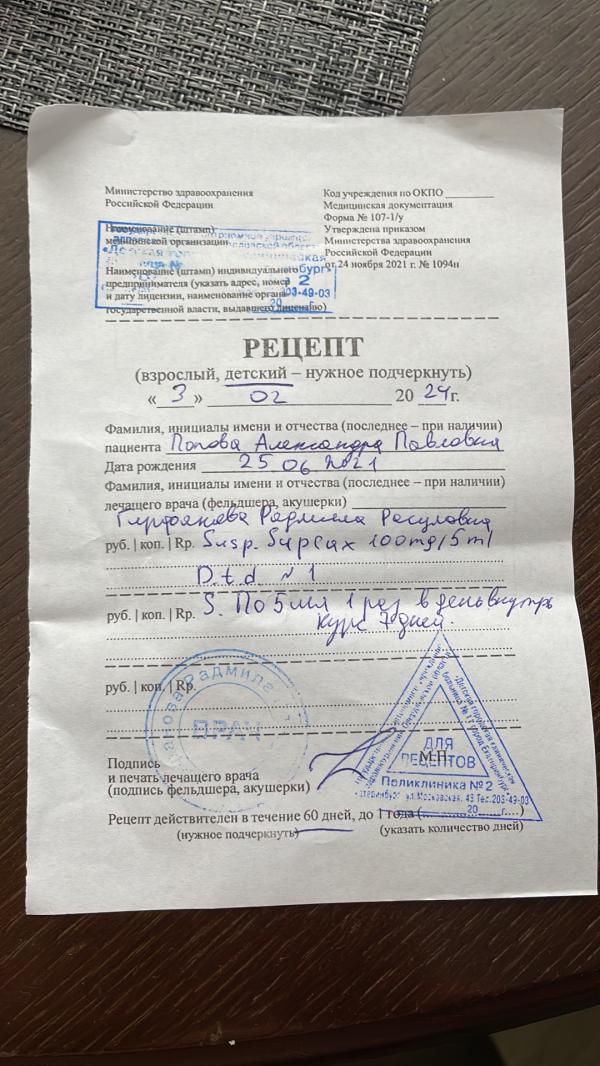 Министерство здравоохранения
Российской Федерации
Код учреждения по ОКПО
Медицинская документация
Форма № 107-1/у
Утверждена приказом
Министерства здравоохранения
Российской Федерации
от 24 ноября 2021 г. № 1094н
Наименование (штамп)
медицинской организации
Наименование (штамп) индивидуального
предпринимателя (указать адрес, номер
и дату лицензии, наименование органа
государственной власти, выдавшего лицензию)
2
203-49-03
20
РЕЦЕПТ
(взрослый, детский – нужное подчеркнуть)
« 3 » 02 20 24 г.
Фамилия, инициалы имени и отчества (последнее – при наличии)
пациента Попова Александра Павловна
Дата рождения 25 06 2021
Фамилия, инициалы имени и отчества (последнее – при наличии)
лечащего врача (фельдшера, акушерки)
Радмила Расуловна
руб. | коп. | Rp. Susp. Suprax 100mg/5ml
D.t.d. N 1
руб. | коп. | Rp. S. По 5 мл 1 раз в день внутрь
курс 7 дней.
руб. | коп. | Rp.
Радмила
ВРАЧ
Подпись
и печать лечащего врача
(подпись фельдшера, акушерки)
М.П.
Детская городская клиническая
больница
город Екатеринбург
ДЛЯ
РЕЦЕПТОВ
Поликлиника №2
г.Екатеринбург ул.Московская, 43 Тел.203-49-03
20
Рецепт действителен в течение 60 дней, до 1 года (
г.....)
(нужное подчеркнуть)
(указать количество дней)